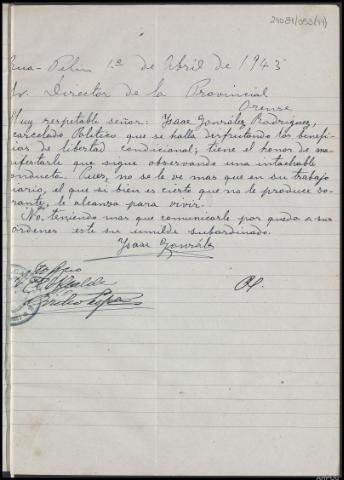 24084/053(44)
rua-Petin 1º de Abril de 1943
Sr. Director de la Provincial
Orense
Muy respetable señor: Ysaac González Rodriguez,
carcelado Político que se halla disfrutando los benefi-
cios de libertad condicional, tiene el honor de ma-
nifestarle que sigue observando una intachable
conducta. Pues, no se le ve mas que en su trabajo
diario, el que si bien es cierto que no le produce so-
rante, le alcanza para vivir.
No, teniendo mas que comunicarle por queda a sus
órdenes este su umilde subordinado.
Ysaac González
El Alcalde